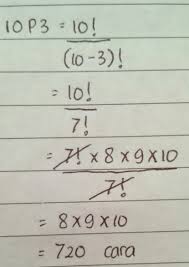 10P3 = 10!
(10-3)!
= 10!
7!
= 7! x 8 x 9 x 10
7!
= 8 x 9 x 10
= 720 cara